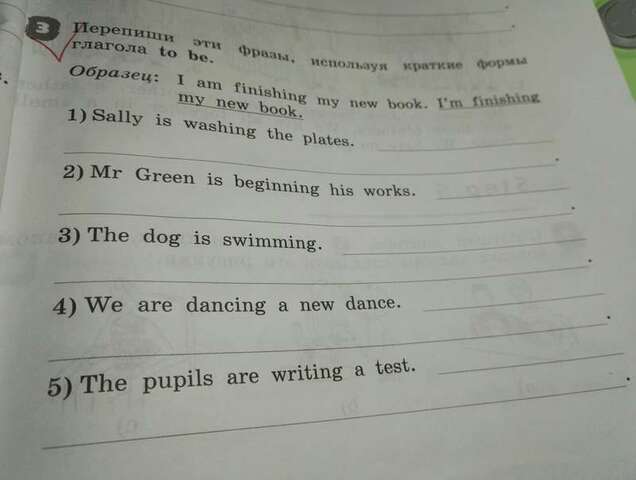 3 Перепиши эти фразы, используя краткие формы
глагола to be.
Образец: I am finishing my new book. I'm finishing
my new book.
1) Sally is washing the plates.
2) Mr Green is beginning his works.
3) The dog is swimming.
4) We are dancing a new dance.
5) The pupils are writing a test.